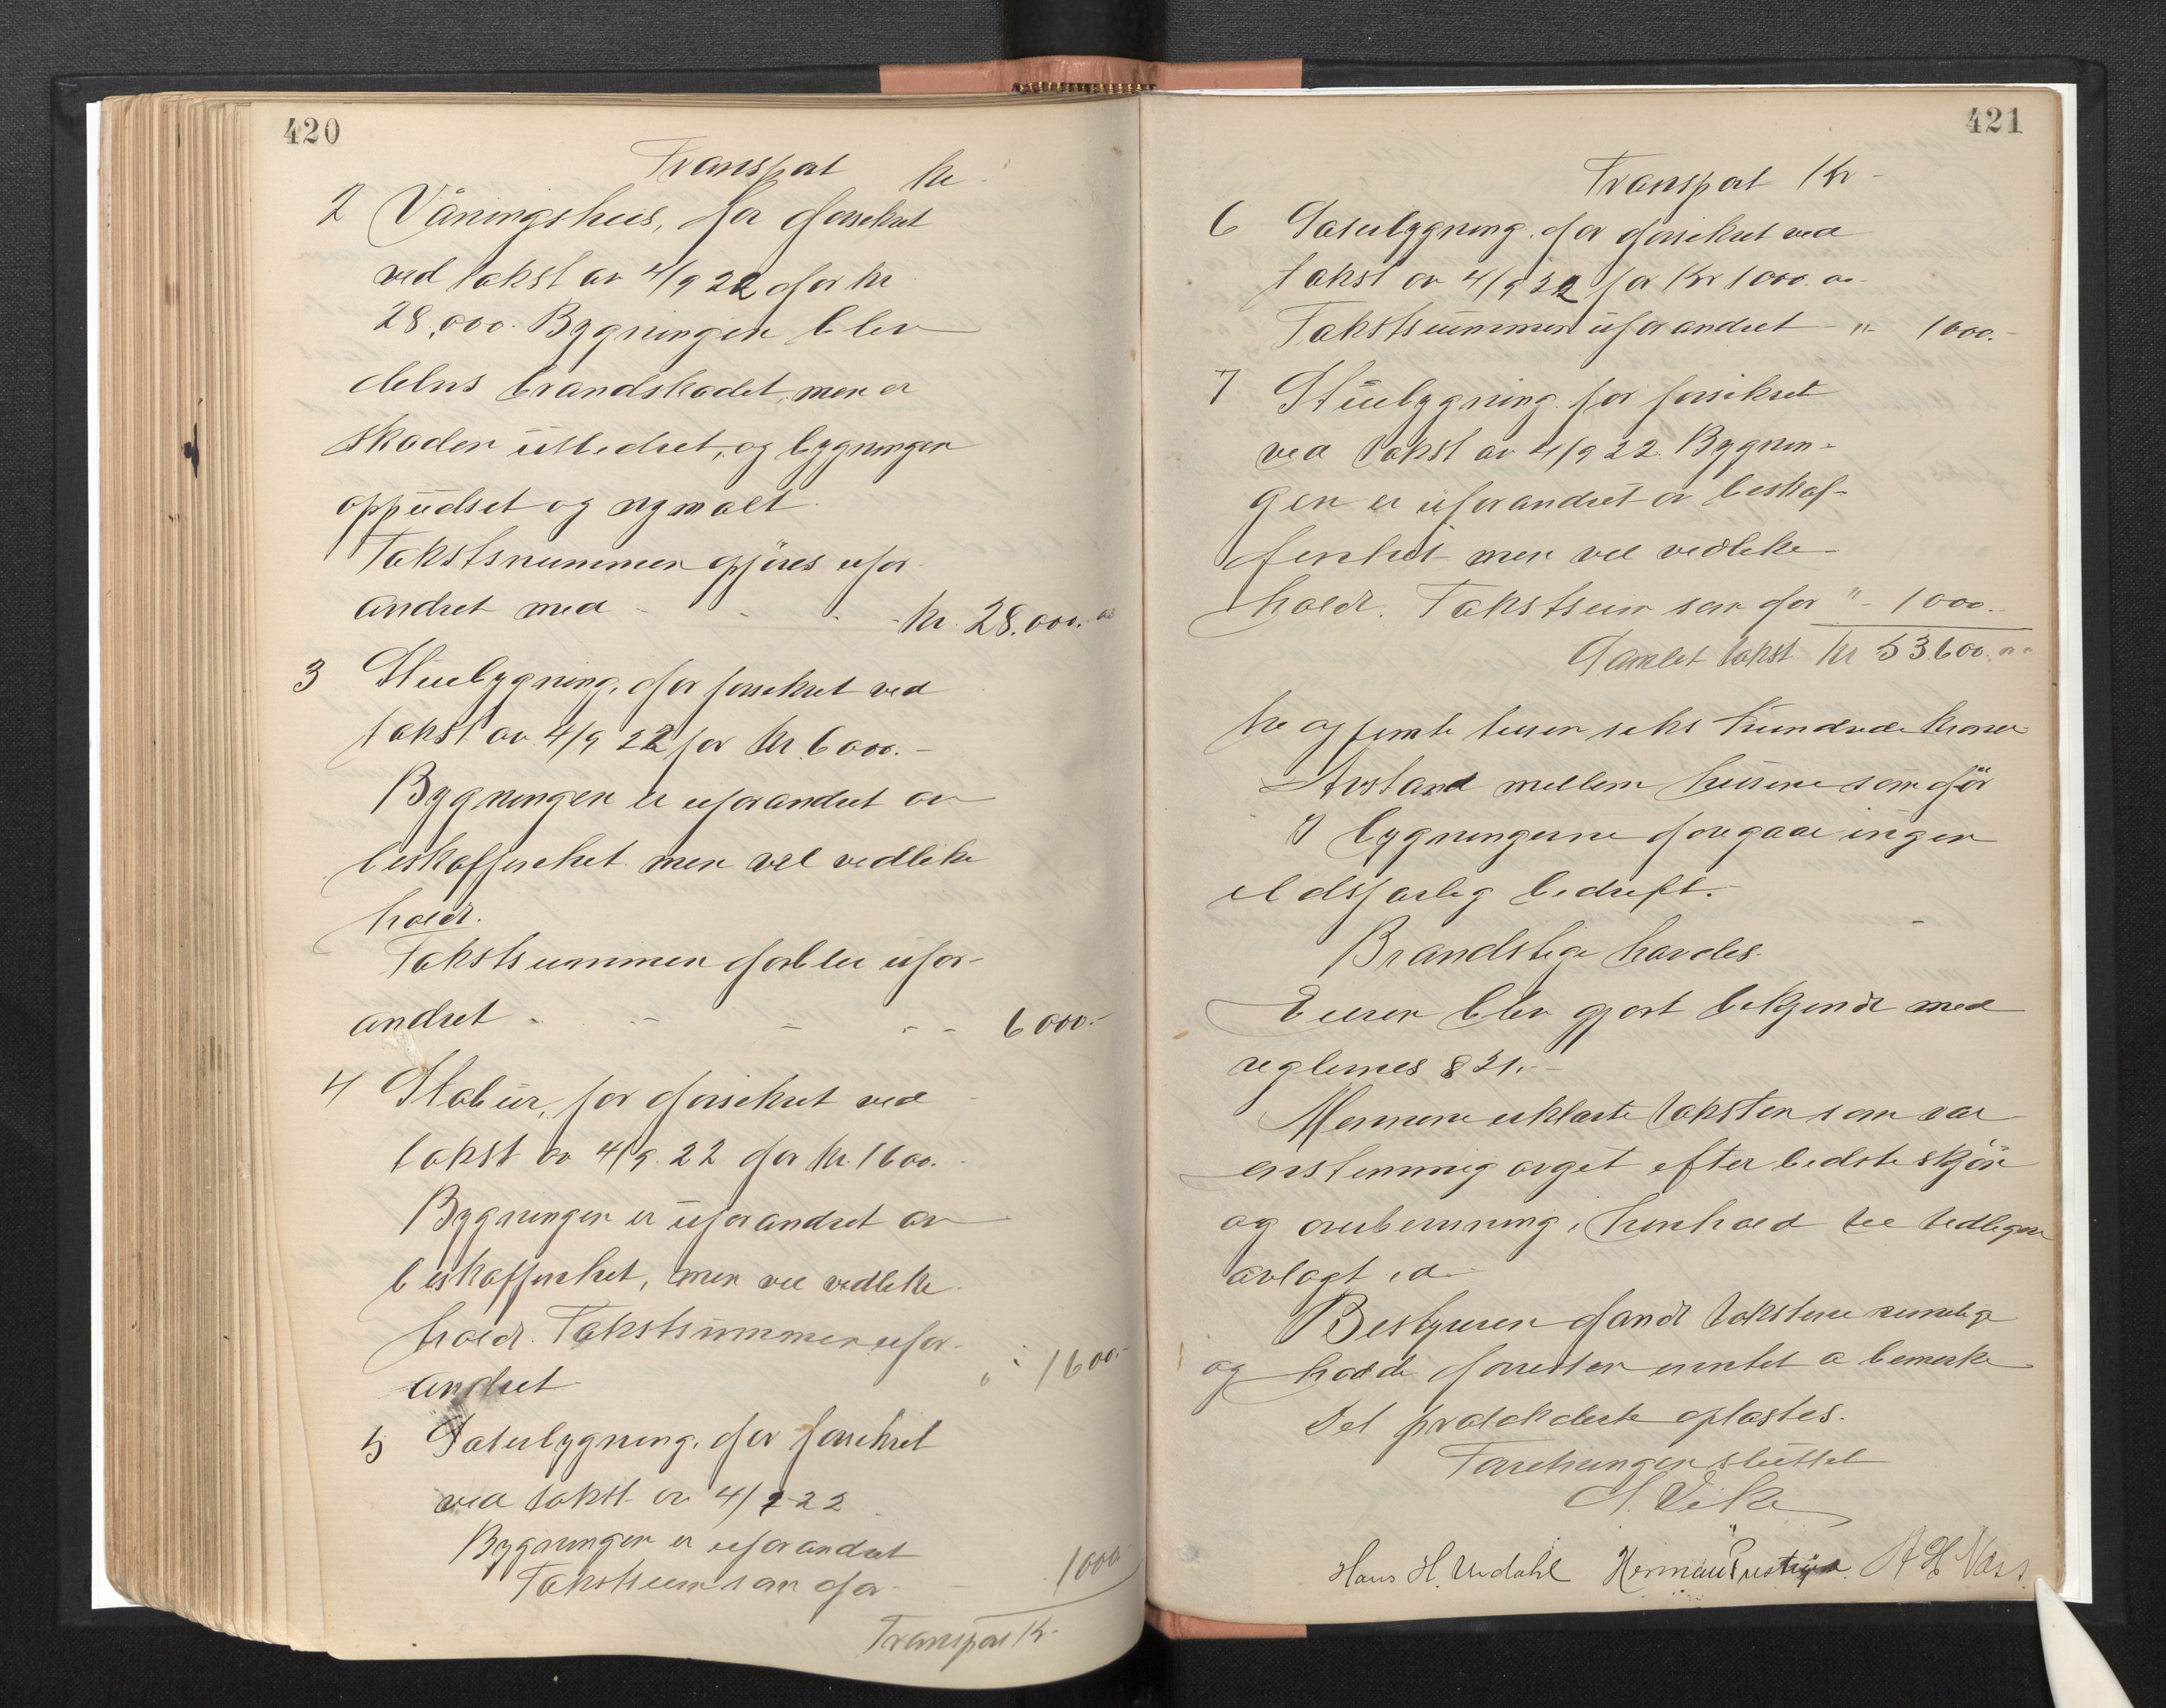 420
Transport kr
2 Våningshus, før forsikret
ved takst av 4/9 22 for kr
28.000. Bygningen blev
delvis brandskadet, men er
skaden utbedret, og bygningen
oppudset og nymalt.
Takstsummen gjöres ufor-
andret med - - - kr. 28.000.00
3 Stuebygning, før forsikret ved
takst av 4/9 22 for kr 6000.-
Bygningen er uforandret av
beskaffenhet men vel vedlike
holdt.
Takstsummen forblir ufor-
andret - - - - - 6000.-
4 Stabur, før forsikret ved
takst av 4/9.22 for kr. 1600.-
Bygningen er uforandret av
beskaffenhet, men vel vedlike-
holdt. Takstsummen ufor-
andret - 1600.-
5 Saterbygning, før forsikret
ved takst av 4/9 22
Bygningen er uforandret
Takstsum som før - 1000-
Transport Kr-
421
Transport Kr-
6 Saterbygning, før forsikret ved
takst av 4/9 22 for Kr 1000.00
Takstsummen uforandret - " 1000.-
7 Stuebygning før forsikret
ved takst av 4/9 22. Bygnin-
gen er uforandret av beskaf-
fenhet men vel vedlike-
holdt. Takstsum som før "- 1000.-
Samlet takst kr 53600.00
tre og femti tusen seks hundrede kroner
Avstand mellem husene som før
I bygningerne foregaar ingen
ildsfarlig bedrift.
Brandstige havdes.
Eieren blev gjort bekjendt med
reglernes § 31.-
Mennene erklærte taksten som var
enstemmig avget efter bedste skjön
og overbevisning i henhold til tidligere
avlagt ed.
Bestyreren fandt takstene rimelige
og hadde forresten intet a bemerke
Det protokolerte oplæstes.
Forretningen sluttet
Vike
Hans H. Urdahl Herman A H Næss